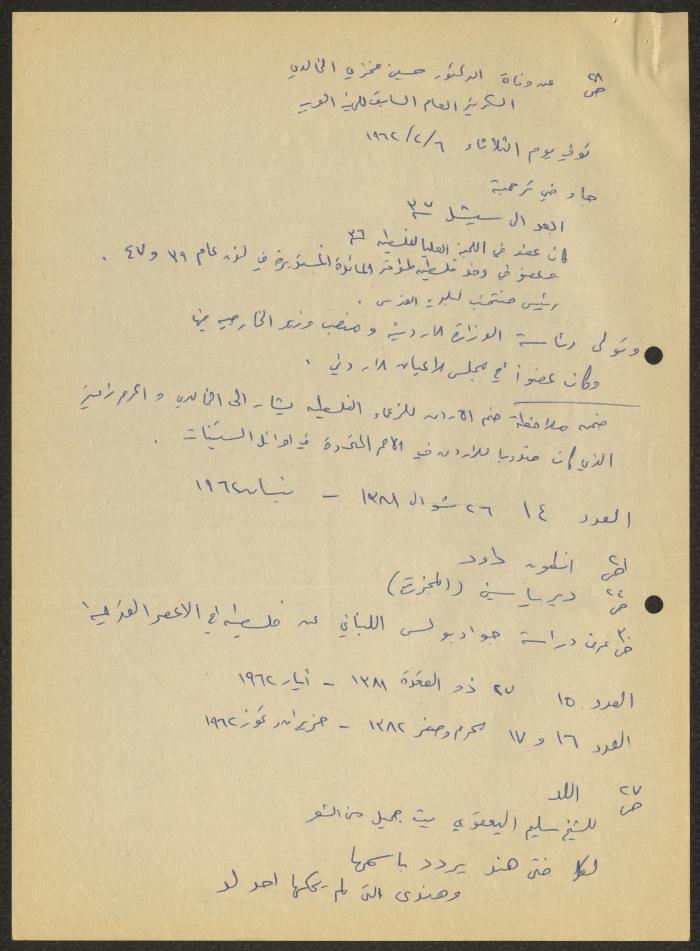 ص ٢٨ عن وفاة الدكتور حسين فخري الخالدي
السكرتير العام السابق للهيئة العربية
توفي يوم الثلاثاء ١٩٦٢/٢/٦
جاء في ترجمته
ابعد الى سيشل ٣٧
كان عضو في اللجنة العليا لفلسطين ٣٦
وعضو في وفد فلسطين لمؤتمر المائدة المستديرة في لندن عام ٣٩ و ٤٧ .
رئيس منتخب لبلدية القدس .
وتولى رئاسة الوزارة الاردنية و منصب وزير الخارجية فيها
وكان عضواً في مجلس الاعيان الاردني .
ضمن ملاحظة ضم الاردن للزعماء الفلسطينيين يشار الى الخالدي و
الذي كان مندوبا للاردن في الامم المتحدة في اوائل الستينات .
العدد ١٤ ٢٦ شوال ١٣٨١ - نيسان ١٩٦٢
ص انطون داود
ص ٢٤ دير ياسين (المجزرة)
ص ٣٠ عرض دراسة جواد بولس اللبناني عن فلسطين في الاعصر القديمة
العدد ١٥ ٢٧ ذو القعدة ١٣٨١ - أيار ١٩٦٢
العدد ١٦ و ١٧ محرم وصفر ١٣٨٢ - حزيران و تموز ١٩٦٢
ص ٢٧ اللد
للشيخ سليم اليعقوبي بيت جميل من الشعر
لكل فتى هند يردد باسمها
وهندى التي لم يحكها احد لد